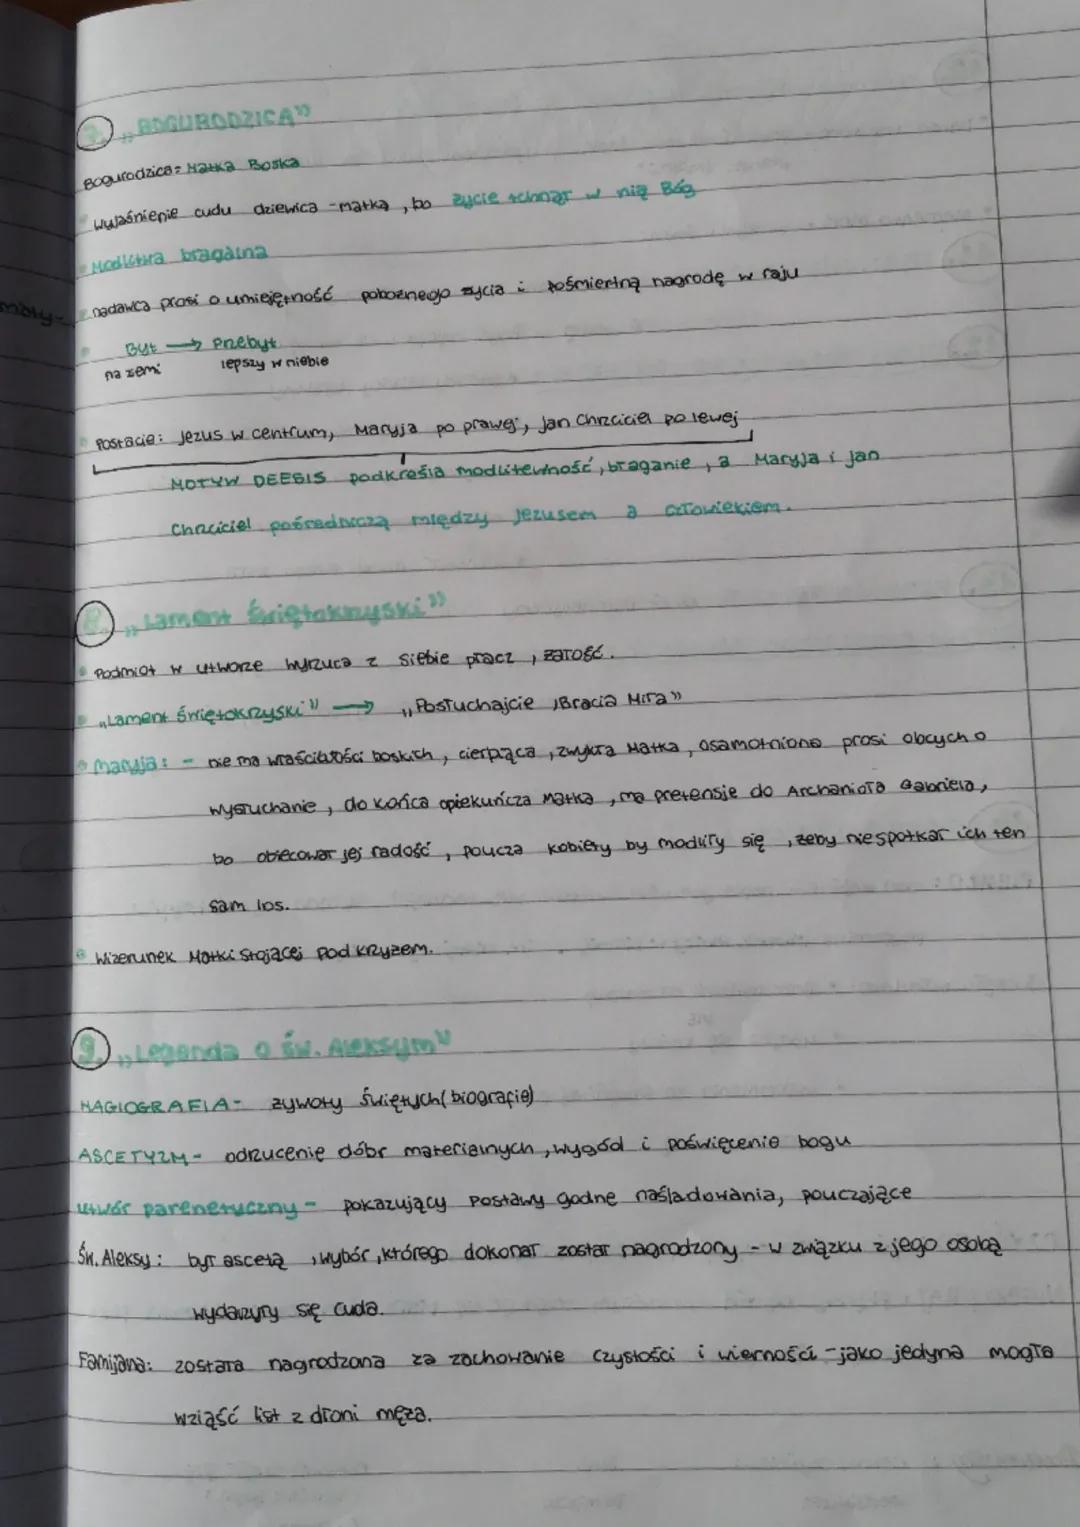 7. „BOGURODZICA”
Bogurodzica= Matka Boska
wyjaśnienie cudu dziewica -matka, bo życie tchnął w nią Bóg
Modlitwa błagalna
nadawca prosi o umiejętność pobożnego życia i pośmiertną nagrodę w raju
Byt → Przebyt
na ziemi lepszy w niebie
Postacie: Jezus w centrum, Maryja po prawej, Jan Chrzciciel po lewej
MOTYW DEESIS podkreśla modlitewność, błaganie, a Maryja i Jan
Chrzciciel pośredniczą między Jezusem a człowiekiem.
8. „Lament Świętokrzyski”
Podmiot w utworze wyrzuca z siebie płacz, żałość.
„Lament Świętokrzyski” → „Posłuchajcie, Bracia Miła”
Maryja: - nie ma właściwości boskich, cierpiąca, zwykła Matka, osamotniona prosi obcych o
wysłuchanie, do końca opiekuńcza Matka, ma pretensje do Archanioła Gabriela,
bo obiecował jej radość, poucza kobiety by modliły się, żeby nie spotkał ich ten
sam los.
Wizerunek Matki Stojącej pod krzyżem.
9. „Legenda o św. Aleksym”
HAGIOGRAFIA- żywoty Świętych(biografie)
ASCETYZM- odrzucenie dóbr materialnych, wygód i poświęcenie bogu
utwór parenetyczny - pokazujący postawy godne naśladowania, pouczające
Św. Aleksy: był ascetą, wybór, którego dokonał został nagrodzony - w związku z jego osobą
wydarzyły się cuda.
Famijana: została nagrodzona za zachowanie czystości i wierności -jako jedyna mogła
wziąść list z dłoni męża.